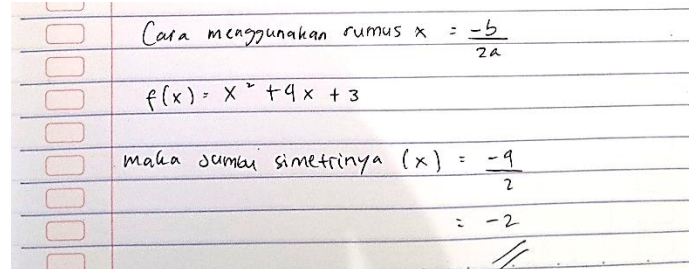 Cara menggunakan rumus x = -b/2a
f(x) = x² + 4x + 3
maka sumbu simetrinya (x) = -4/2
= -2